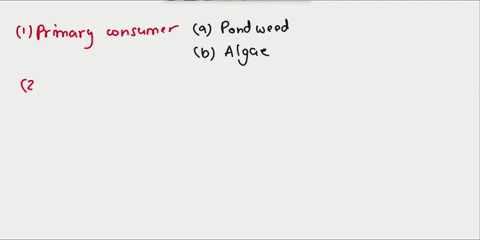 (1) Primary consumer (a) Pondweed
(b) Algae
(2